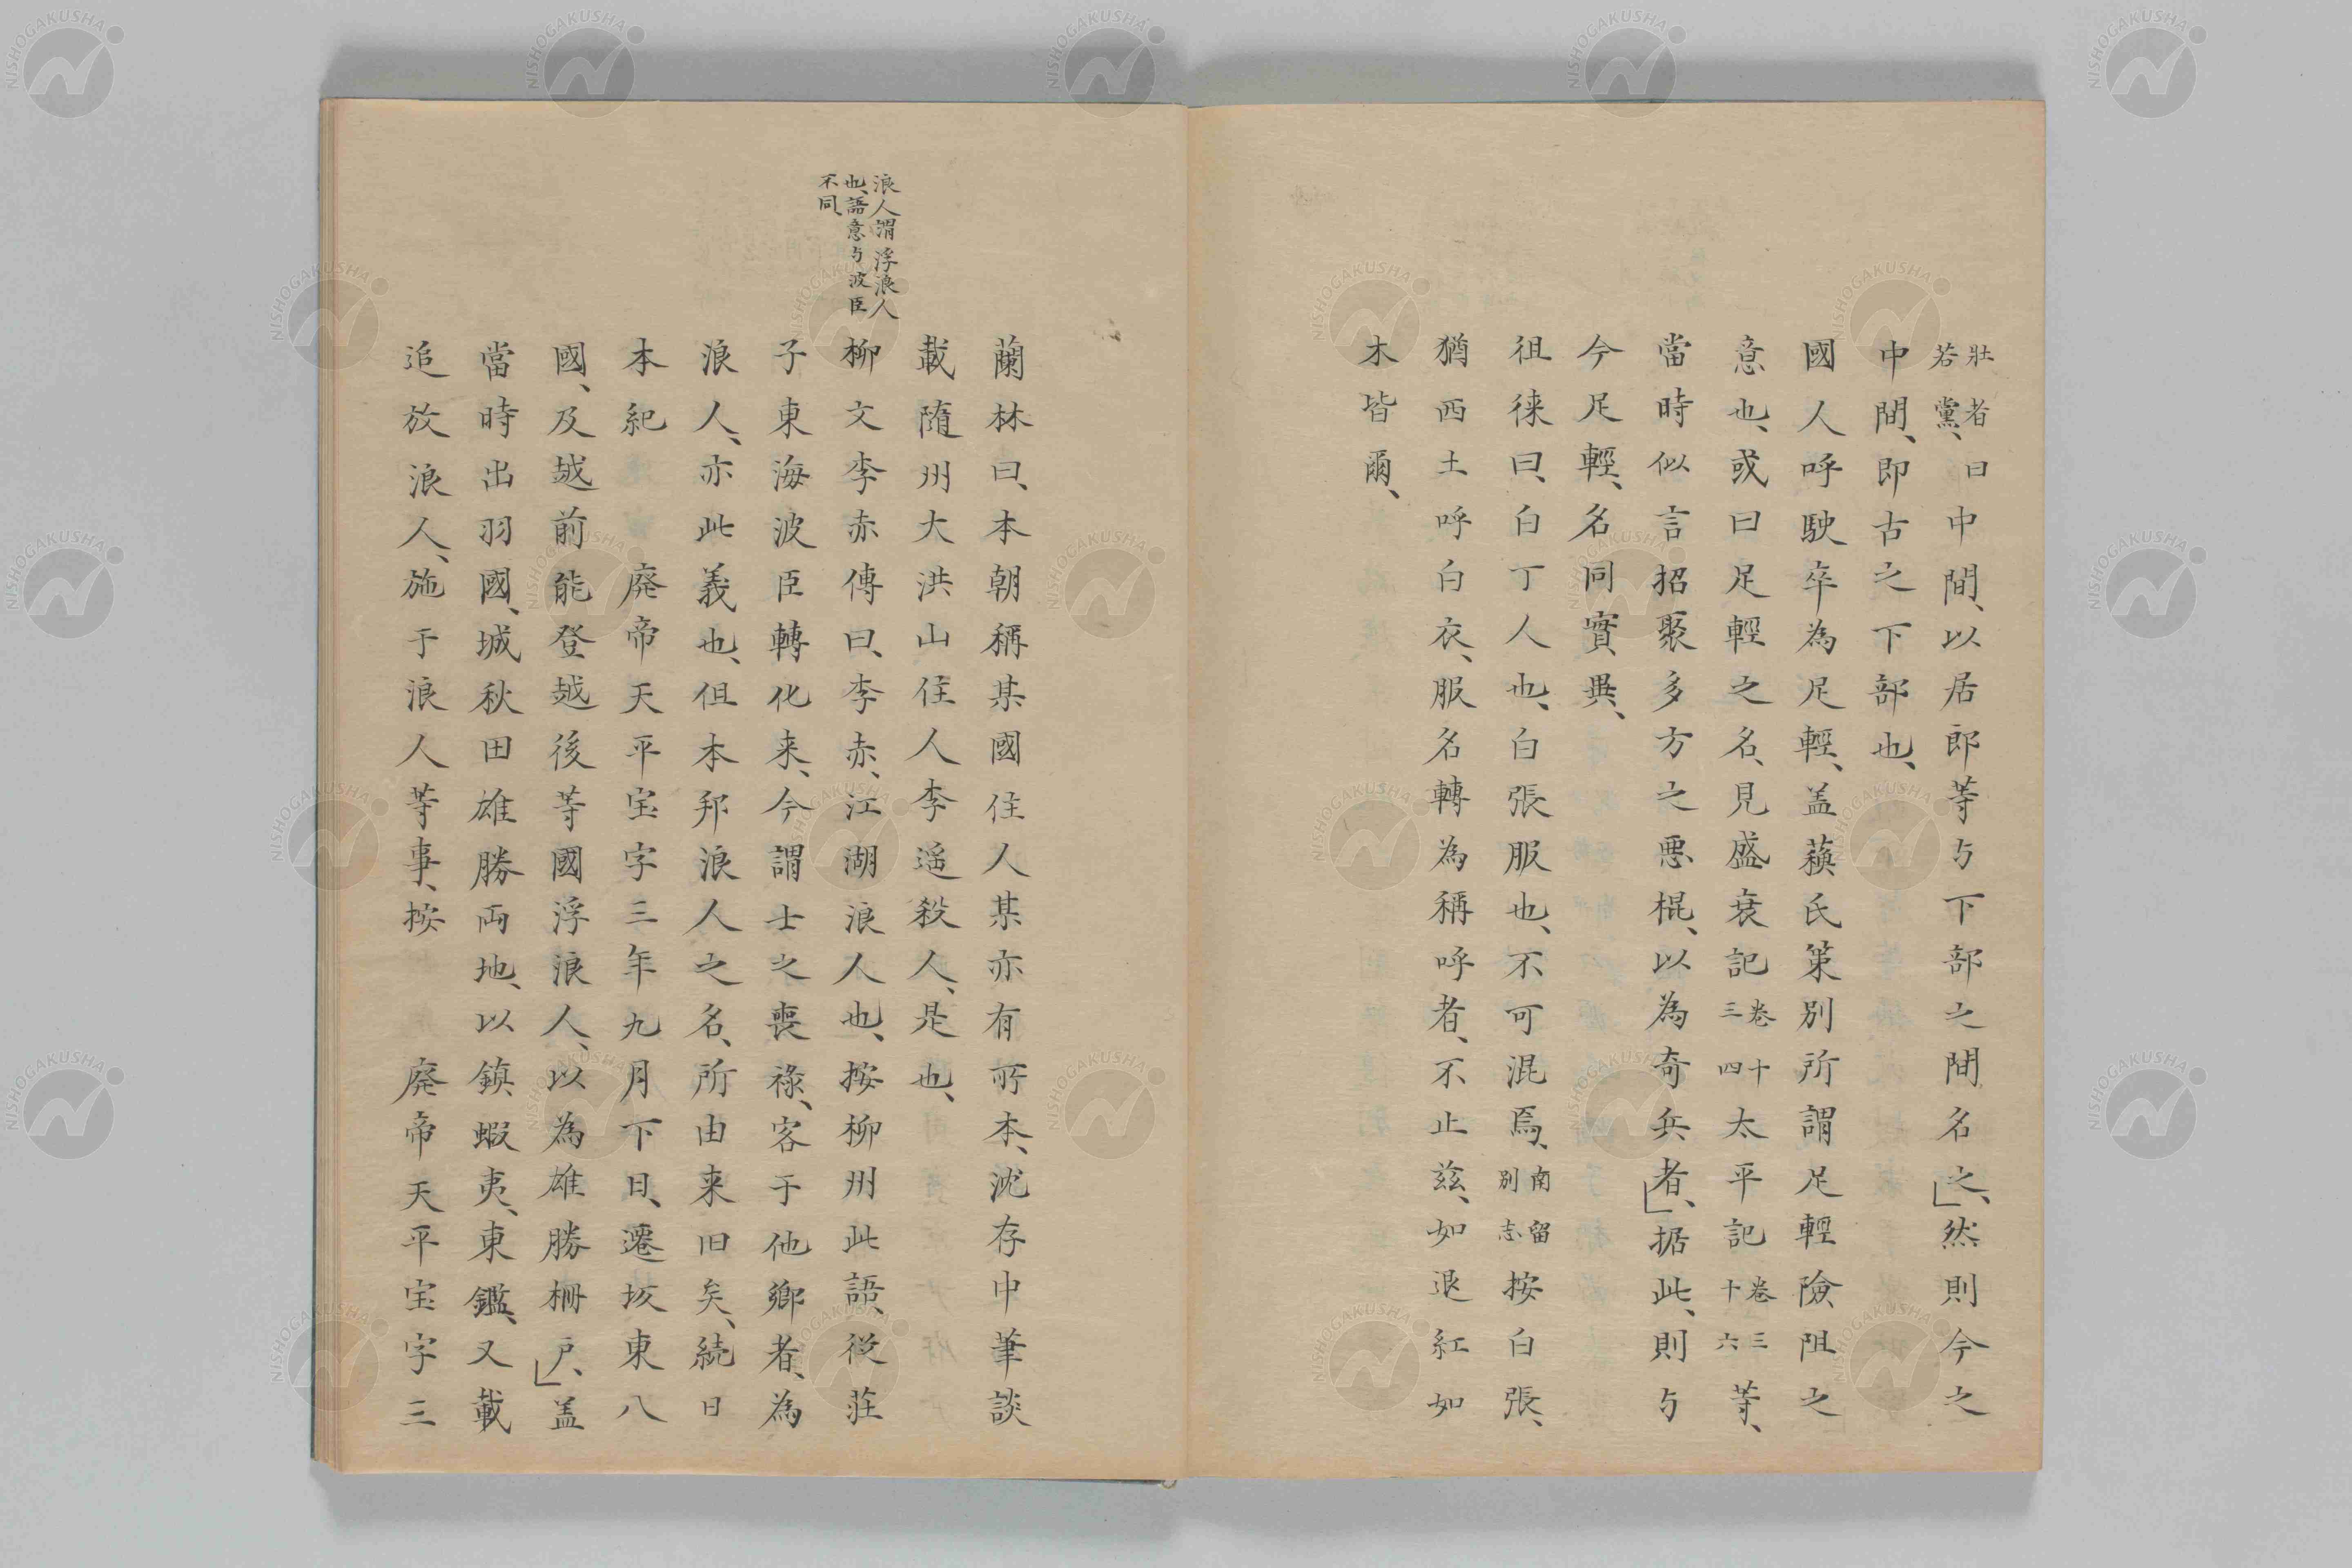 壮者若黨、曰中間、以居郎等与下部之間名之、」然則今之
中間、即古之下部也、
國人呼駛卒為足輕、盖蘓氏策別所謂足輕險阻之
意也、或曰足輕之名、見盛衰記卷十三四太平記卷三十六等、
當時似言招聚多方之悪棍、以為奇兵者、」据此、則与
今足輕、名同實異、
徂徠曰、白丁人也、白張服也、不可混焉、南留別志按白張、
猶西土呼白衣、服名轉為稱呼者、不止茲、如退紅如
木皆爾、
浪人謂浮浪人
也、語意与波臣
不同、
蘭林曰、本朝稱某國住人某亦有所本、沈存中筆談
載隨州大洪山住人李遥殺人、是也、
柳文李赤傳曰、李赤、江湖浪人也、按柳州此語、従莊
子東海波臣轉化来、今謂士之喪祿、客于他鄉者、為
浪人、亦此義也、但本邦浪人之名、所由来旧矣、続日
本紀 廃帝天平宝字三年九月下曰、遷坂東八
國、及越前能登越後等國浮浪人、以為雄勝柵戸、」盖
當時出羽國、城秋田雄勝両地、以鎮蝦夷、東鑑、又載
追放浪人、施于浪人等事、按 廃帝天平宝字三